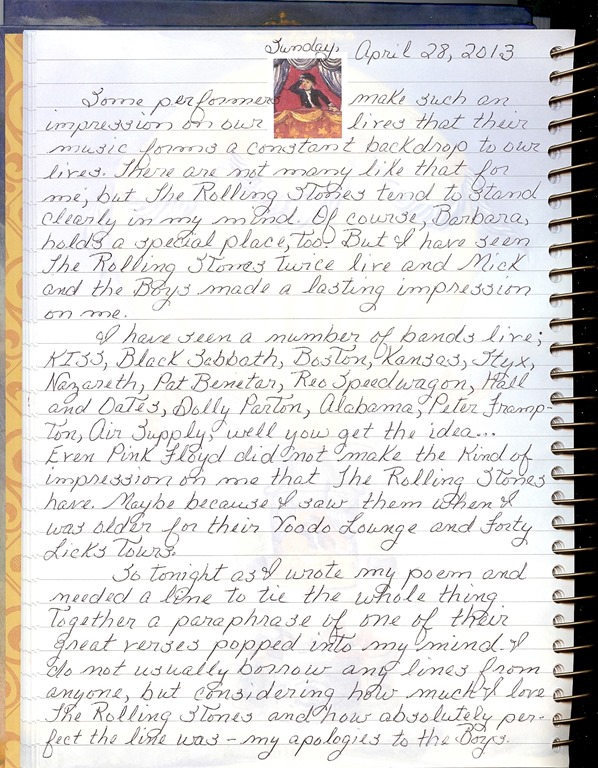 Sunday, April 28, 2013
Some performers make such an
impression on our lives that their
music forms a constant backdrop to our
lives. There are not many like that for
me, but The Rolling Stones tend to stand
clearly in my mind. Of course, Barbara,
holds a special place, too. But I have seen
The Rolling Stones twice live and Mick
and the Boys made a lasting impression
on me.
I have seen a number of bands live;
KISS, Black Sabbath, Boston, Kansas, Styx,
Nazareth, Pat Benetar, Reo Speedwagon, Hall
and Oates, Dolly Parton, Alabama, Peter Framp-
ton, Air Supply, well you get the idea...
Even Pink Floyd did not make the kind of
impression on me that The Rolling Stones
have. Maybe because I saw them when I
was older for their Voodo Lounge and Forty
Licks Tours.
So tonight as I wrote my poem and
needed a line to tie the whole thing
together a paraphrase of one of their
great verses popped into my mind. I
do not usually borrow any lines from
anyone, but considering how much I love
The Rolling Stones and how absolutely per-
fect the line was - my apologies to the Boys.